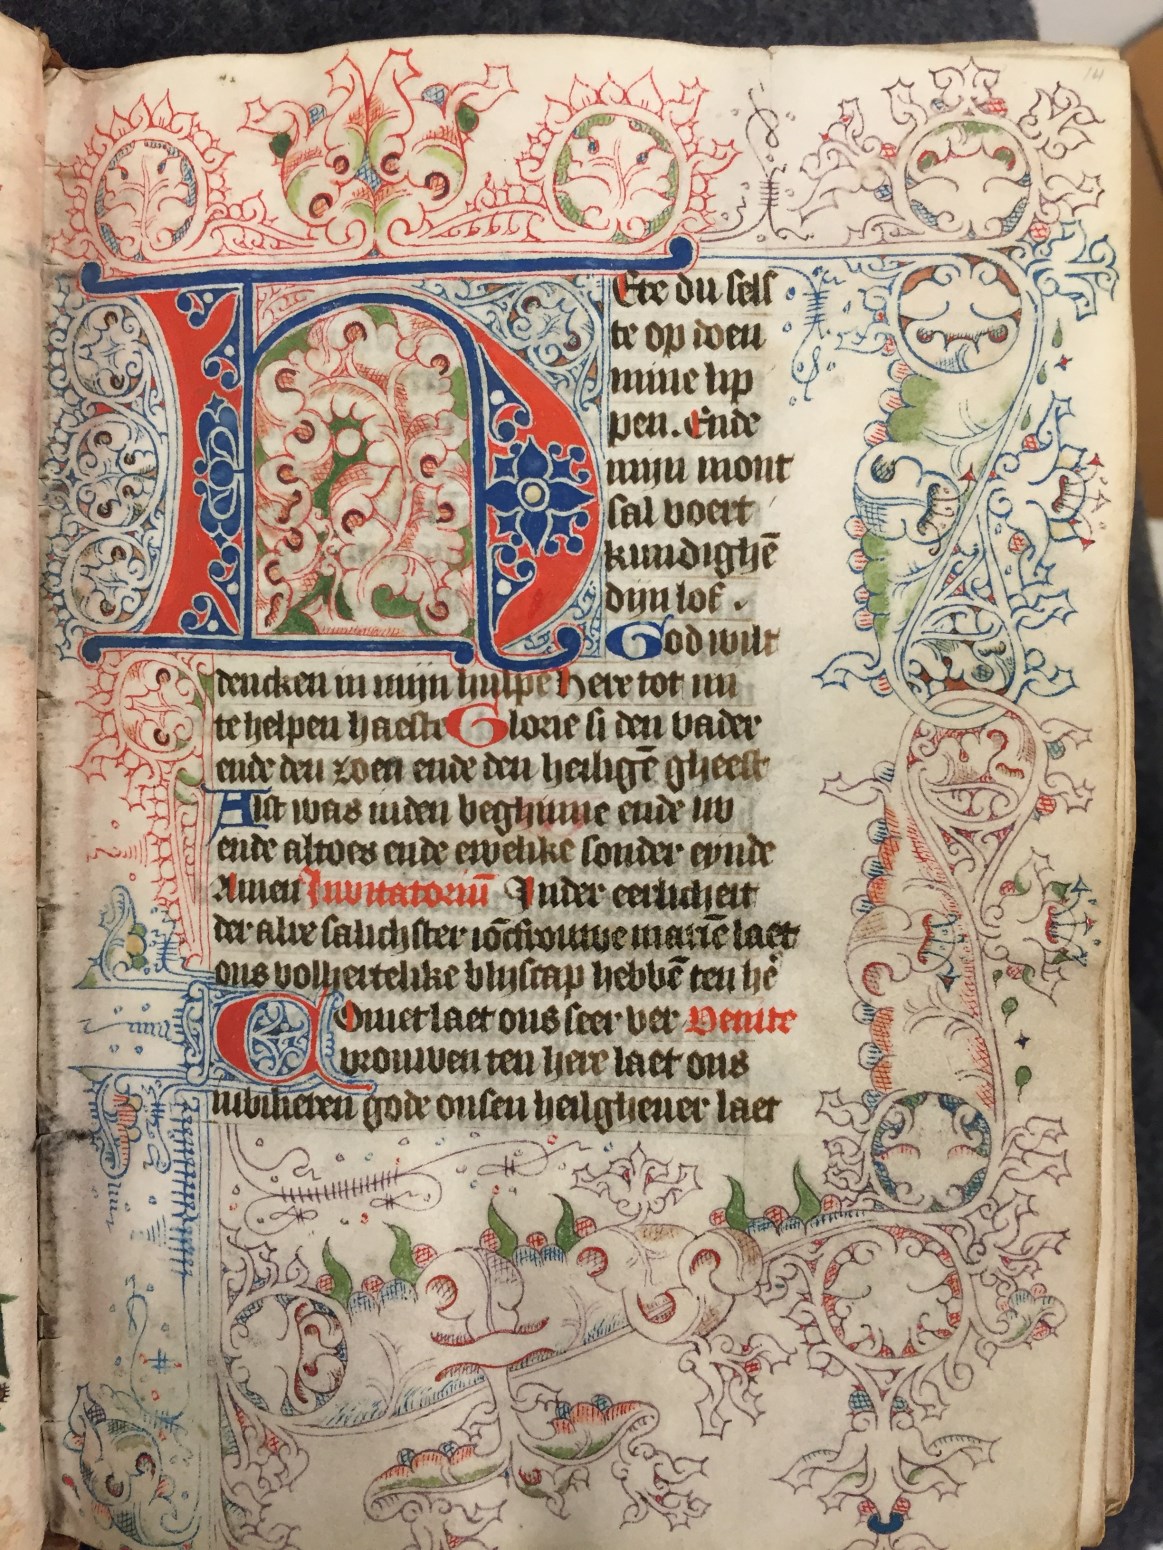 14
HEre du selt
te op doen
mine lip
pen. Ende
mijn mont
sal voert
kundighē
dijn lof.
God wilt
dencken in mijn hulpe Here tot mi
te helpen haeste Glorie si den vader
ende den zoen ende den heiligē gheest
Alst was inden beghinne ende nv
ende altoes ende ewelike sonder eynde
Amen Invitatoriū Inder eerlicheit
der alre salichster iōcfrouwe mariē laet
ons volhertelike bliscap hebbē ten hē
Comet laet ons seer ver Venite
vrouwen ten here laet ons
iubilieren gode onsen heilghener laet